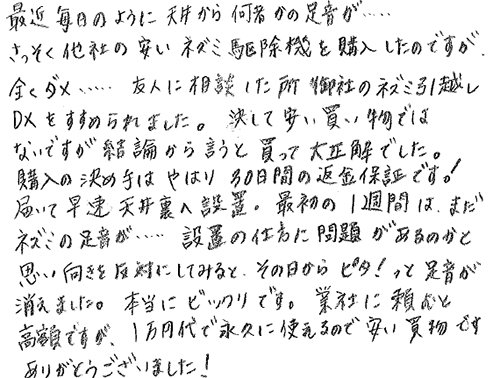 最近毎日のように天井から何者かの足音が……
さっそく他社の安いネズミ駆除機を購入したのですが、
全くダメ…… 友人に相談した所 御社のネズミ引越し
DXをすすめられました。 決して安い買い物では
ないですが結論から言うと買って大正解でした。
購入の決め手は やはり 30日間の返金保証です。!
届いて早速 天井裏へ設置。 最初の1週間は、まだ
ネズミの足音が…… 設置の仕方に問題があるのかと
思い向きを反対にしてみると、その日からピタ!っと足音が
消えました。 本当にビックリです。 業社に頼むと
高額ですが、1万円代で永久に使えるので安い買物です
ありがとうございました!